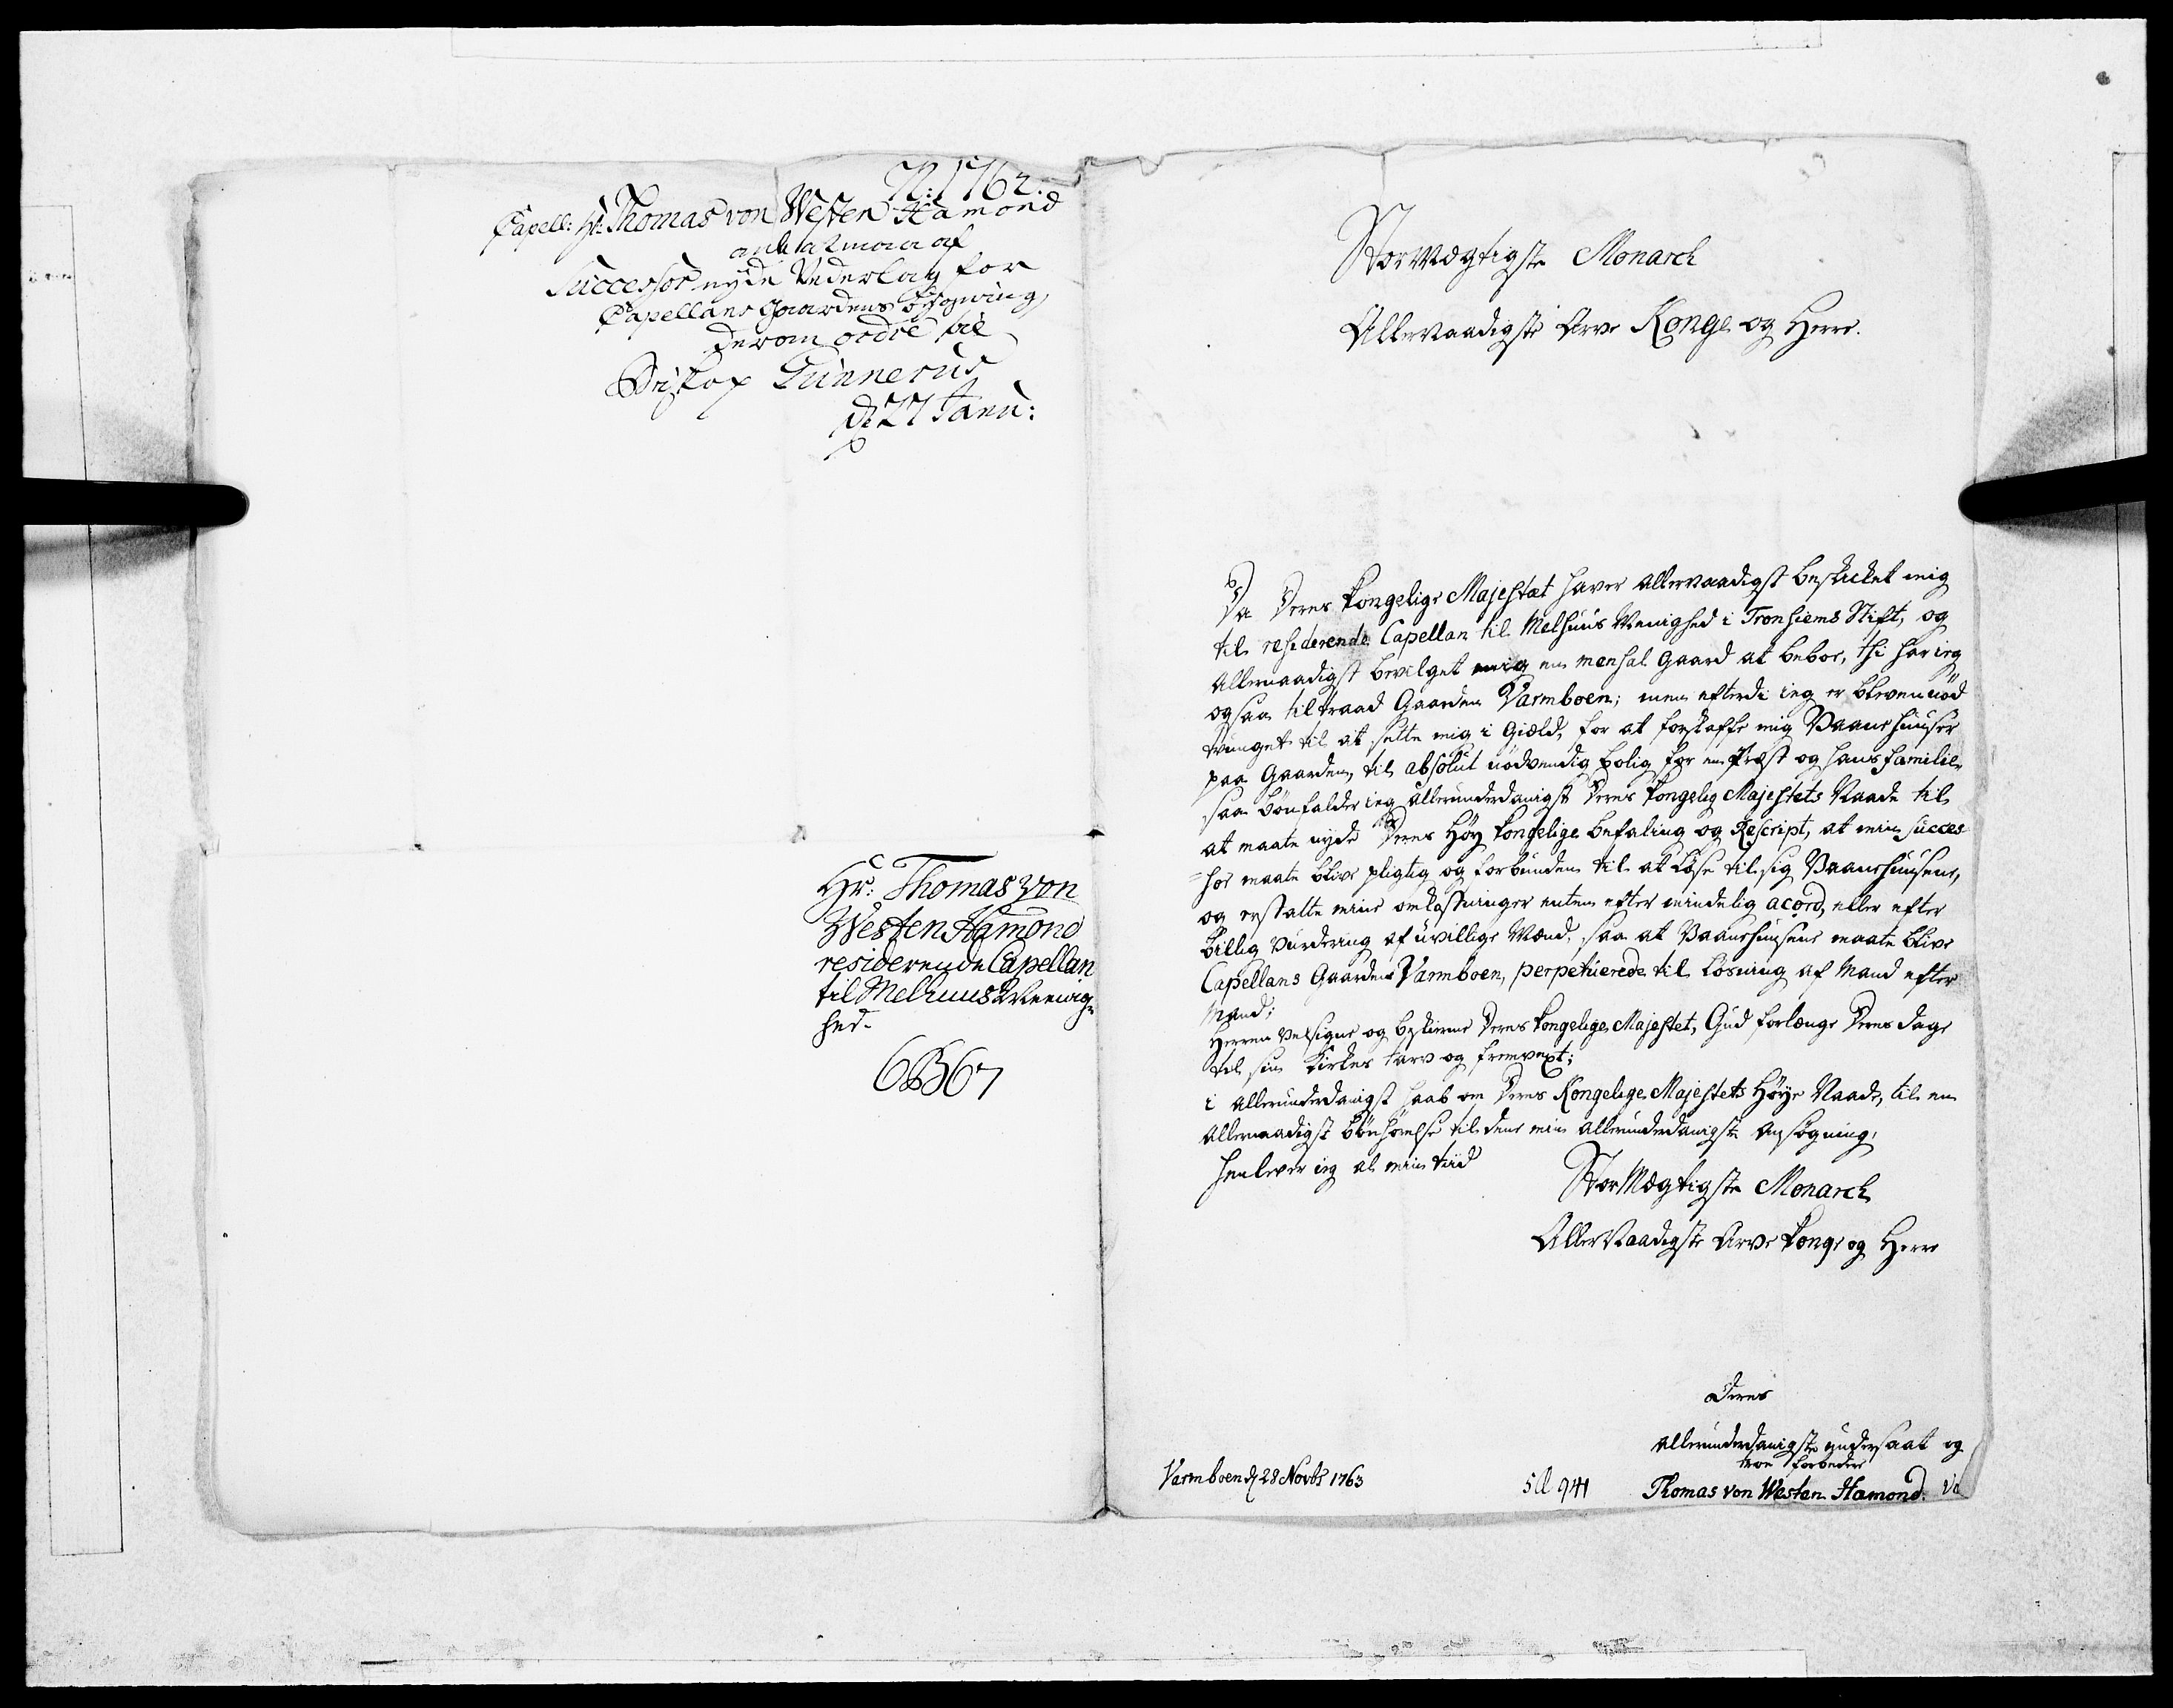 N: 1762.
Capell: Hr: Thomas von Westen Hamond
at maa af
Successor nyde Vederlag for
Capellans Gaardens bygning,
derom ordre til
Biskop Gunnerus
d: 27 Janu:
Hr: Thomas von
Westen Hamond
residerende Capellan
til Melhuus Meenig-
hed.
6B67
StorMægtigste Monarch
Allernaadigste Arve Konge og Herre.
Da Deres Kongelige Majestæt haver allernaadigst beskicket mig
til residerende Capellan til Melhuus Menighed i Tronhiems Stift, og
allernaadigst bevilget mig en mensal Gaard at beboe, thi har ieg
ogsaa tiltraad Gaarden Varmboen; men efterdi ieg er bleven nød
tvunget til at sette mig i Giæld, for at forskaffe mig Vaanehuuser
paa Gaarden, til absolut nødvendig bolig for en Præst og hans familie,
saa bønfalder ieg allerunderdanigst Deres Kongelig Majestets Naade til
at maate nyde Deres Høy Kongelige befaling og Rescript, at min succes-
=sor maate blive pligtig og forbunden til at løse til sig Vaanehuusene,
og erstatte mine omkostninger enten efter mindelig acord, eller efter
billig vurdering af uvillige Mænd, saa at Vaanehuusene maate blive
Capellans Gaarden Varmboen, perpetuerede til løsning af Mand efter
Mand;
Herren velsigne og beskierme Deres Kongelige Majestet, Gud forlænge Deres dage
til sin Kirkes tarv og fremvext;
i allerunderdanigst haab om Deres Kongelige Majestets Høye Naade, til en
allernaadigst bønhørelse til denne min allerunderdanigste ansøgning,
henlever ieg al min tiid
StorMægtigste Monarch
AllerNaadigste Arve Konge og Herre
Deres
allerunderdanigste undersaat og
troe forbeder
Varmboen d: 28 Novbr 1763
Thomas von Westen Hamond.